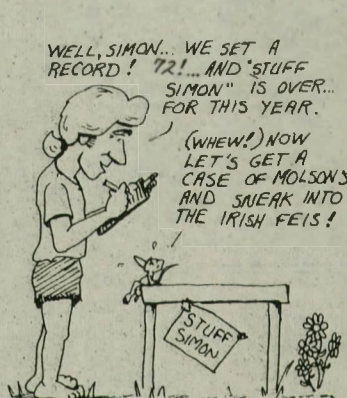 WELL, SIMON... WE SET A
RECORD! 72!... AND "STUFF
SIMON" IS OVER...
FOR THIS YEAR.
(WHEW!) NOW
LET'S GET A
CASE OF MOLSONS
AND SNEAK INTO
THE IRISH FEIS!
STUFF
SIMON